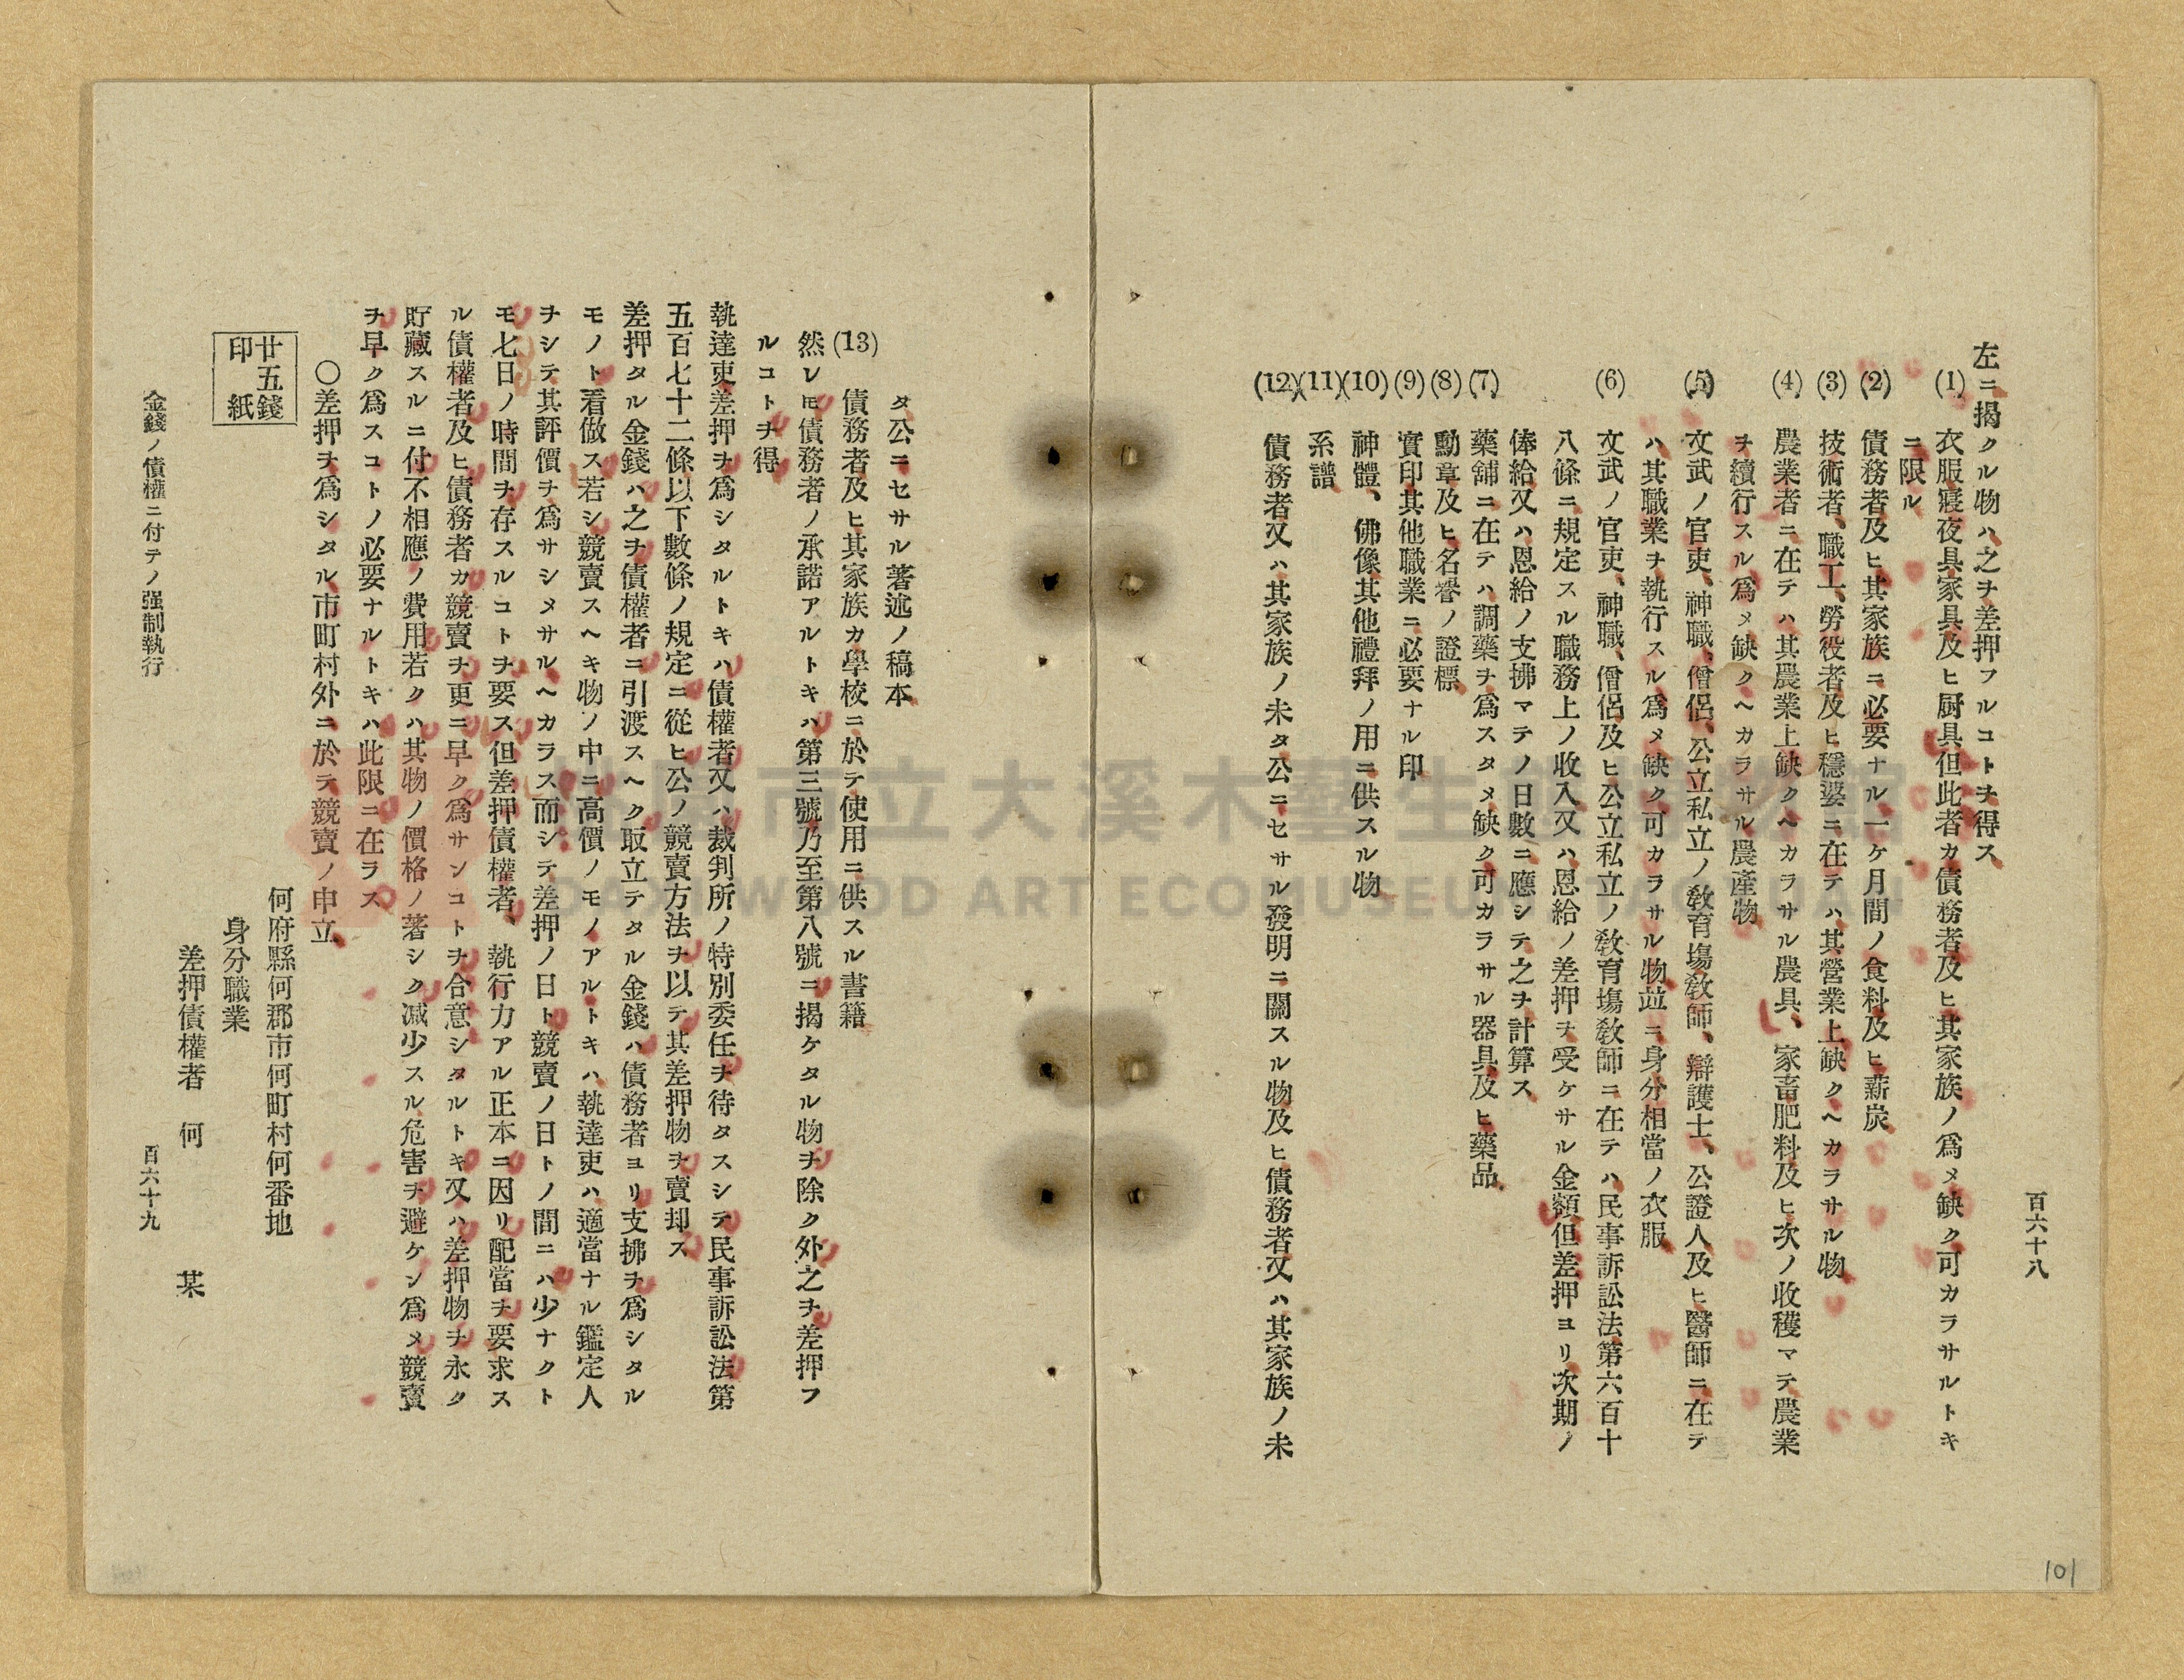 百六十八
左ニ揭クル物ハ之ヲ差押フルコトヲ得ス
(1) 衣服寢夜具家具及ヒ厨具但此者カ債務者及ヒ其家族ノ爲メ缺ク可カラサルトキ
ニ限ル
(2) 債務者及ヒ其家族ニ必要ナル一ケ月間ノ食料及ヒ薪炭
(3) 技術者、職工、勞役者及ヒ穩婆ニ在テハ其營業上缺クヘカラサル物
(4) 農業者ニ在テハ其農業上缺クヘカラサル農具、家畜肥料及ヒ次ノ收穫マテ農業
ヲ續行スル爲メ缺クヘカラサル農產物
(5) 文武ノ官吏、神職、僧侶、公立私立ノ敎育塲敎師、辯護士、公證人及ヒ醫師ニ在テ
ハ其職業ヲ執行スル爲メ缺ク可カラサル物竝ニ身分相當ノ衣服
(6) 文武ノ官吏、神職、僧侶及ヒ公立私立ノ敎育塲敎師ニ在テハ民事訴訟法第六百十
八條ニ規定スル職務上ノ收入又ハ恩給ノ差押ヲ受ケサル金額但差押ヨリ次期ノ
俸給又ハ恩給ノ支拂マテノ日數ニ應シテ之ヲ計算ス
(7) 藥舖ニ在テハ調藥ヲ爲スタメ缺ク可カラサル器具及ヒ藥品
(8) 勳章及ヒ名譽ノ證標
(9) 實印其他職業ニ必要ナル印
(10) 神體、佛像其他禮拜ノ用ニ供スル物
(11) 系譜
(12) 債務者又ハ其家族ノ未タ公ニセサル發明ニ關スル物及ヒ債務者又ハ其家族ノ未
タ公ニセサル著述ノ稿本
(13) 債務者及ヒ其家族カ學校ニ於テ使用ニ供スル書籍
然レ𪜈債務者ノ承諾アルトキハ第三號乃至第八號ニ揭ケタル物ヲ除ク外之ヲ差押フ
ルコトヲ得
執達吏差押ヲ爲シタルトキハ債權者又ハ裁判所ノ特別委任ヲ待タスシテ民事訴訟法第
五百七十二條以下數條ノ規定ニ從ヒ公ノ競賣方法ヲ以テ其差押物ヲ賣却ス
差押タル金錢ハ之ヲ債權者ニ引渡スヘク取立テタル金錢ハ債務者ヨリ支拂ヲ爲シタル
モノト看做ス若シ競賣スヘキ物ノ中ニ高價ノモノアルトキハ執達吏ハ適當ナル鑑定人
ヲシテ其評價ヲ爲サシメサルヘカラス而シテ差押ノ日ト競賣ノ日トノ間ニハ少ナクト
モ七日ノ時間ヲ存スルコトヲ要ス但差押債權者、執行力アル正本ニ因リ配當ヲ要求ス
ル債權者及ヒ債務者カ競賣ヲ更ニ早ク爲サンコトヲ合意シタルトキ又ハ差押物ヲ永ク
貯藏スルニ付不相應ノ費用若クハ其物ノ價格ノ著シク減少スル危害ヲ避ケン爲メ競賣
ヲ早ク爲スコトノ必要ナルトキハ此限ニ在ラス
〇差押ヲ爲シタル市町村外ニ於テ競賣ノ申立
廿五錢
印紙
何府縣何郡市何町村何番地
身分職業
差押債權者 何 某
金錢ノ債權ニ付テノ强制執行
百六十九
101
市立大溪木藝生
DAXI WOOD ART ECOMUSEUM TAOYUAN